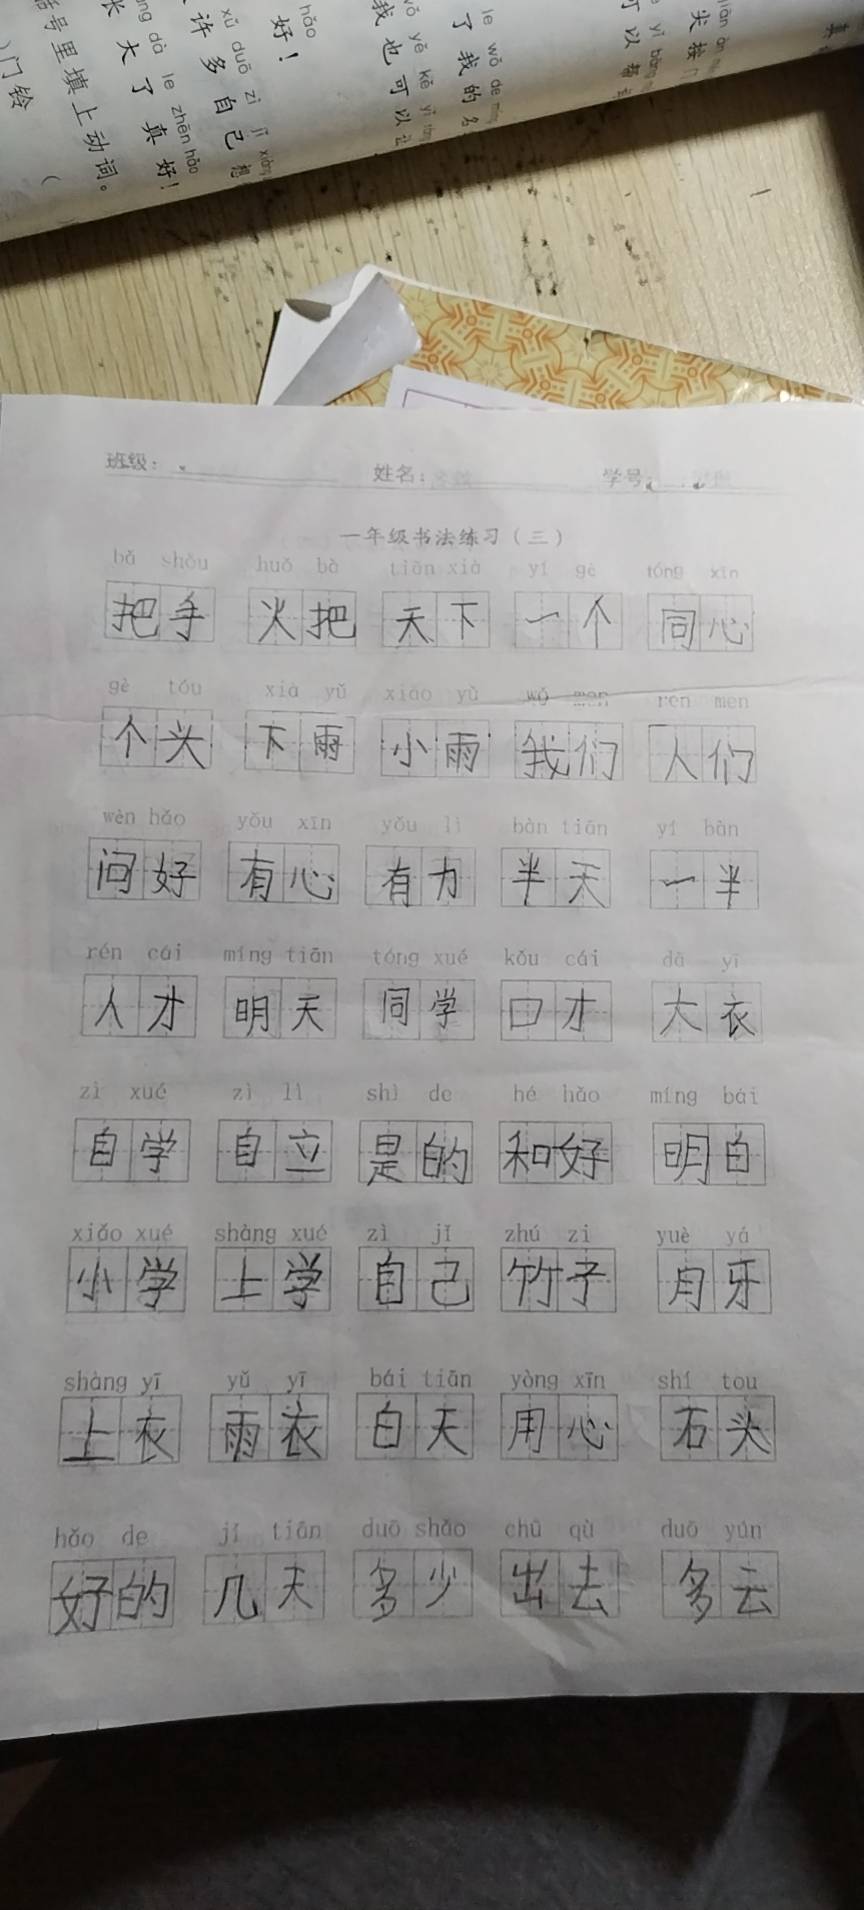 hǎo
好！
xǔ duō zì jǐ
许多自己
dà le zhēn hǎo
大了真好！
号里填上动词。
门铃
wǒ yě kě yǐ
我也可以
le wǒ de
了我的
尖按
可以帮
班级：
姓名：
学号：
一年级书法练习（三）
bǎ shǒu huǒ bǎ tiān xià yí gè tóng xīn
把手 火把 天下 一个 同心
gè tóu xià yǔ xiǎo yǔ wǒ men rén men
个头 下雨 小雨 我们 人们
wèn hǎo yǒu xīn yǒu lì bàn tiān yí bàn
问好 有心 有力 半天 一半
rén cái míng tiān tóng xué kǒu cái dà yī
人才 明天 同学 口才 大衣
zì xué zì lì shì de hé hǎo míng bái
自学 自立 是的 和好 明白
xiǎo xué shàng xué zì jǐ zhú zi yuè yá
小学 上学 自己 竹子 月牙
shàng yī yǔ yī bái tiān yòng xīn shí tou
上衣 雨衣 白天 用心 石头
hǎo de jǐ tiān duō shǎo chū qù duō yún
好的 几天 多少 出去 多云